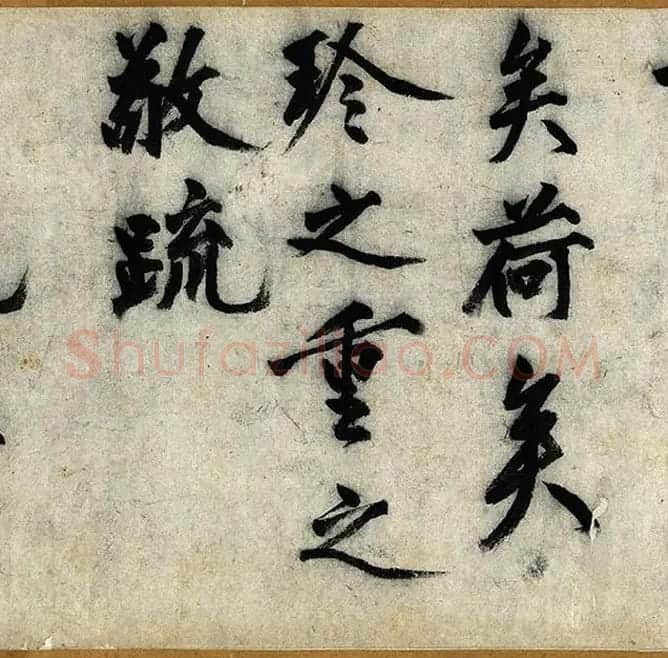 矣荷矣
珍之重之
敬疏
Shufaziliao.COM